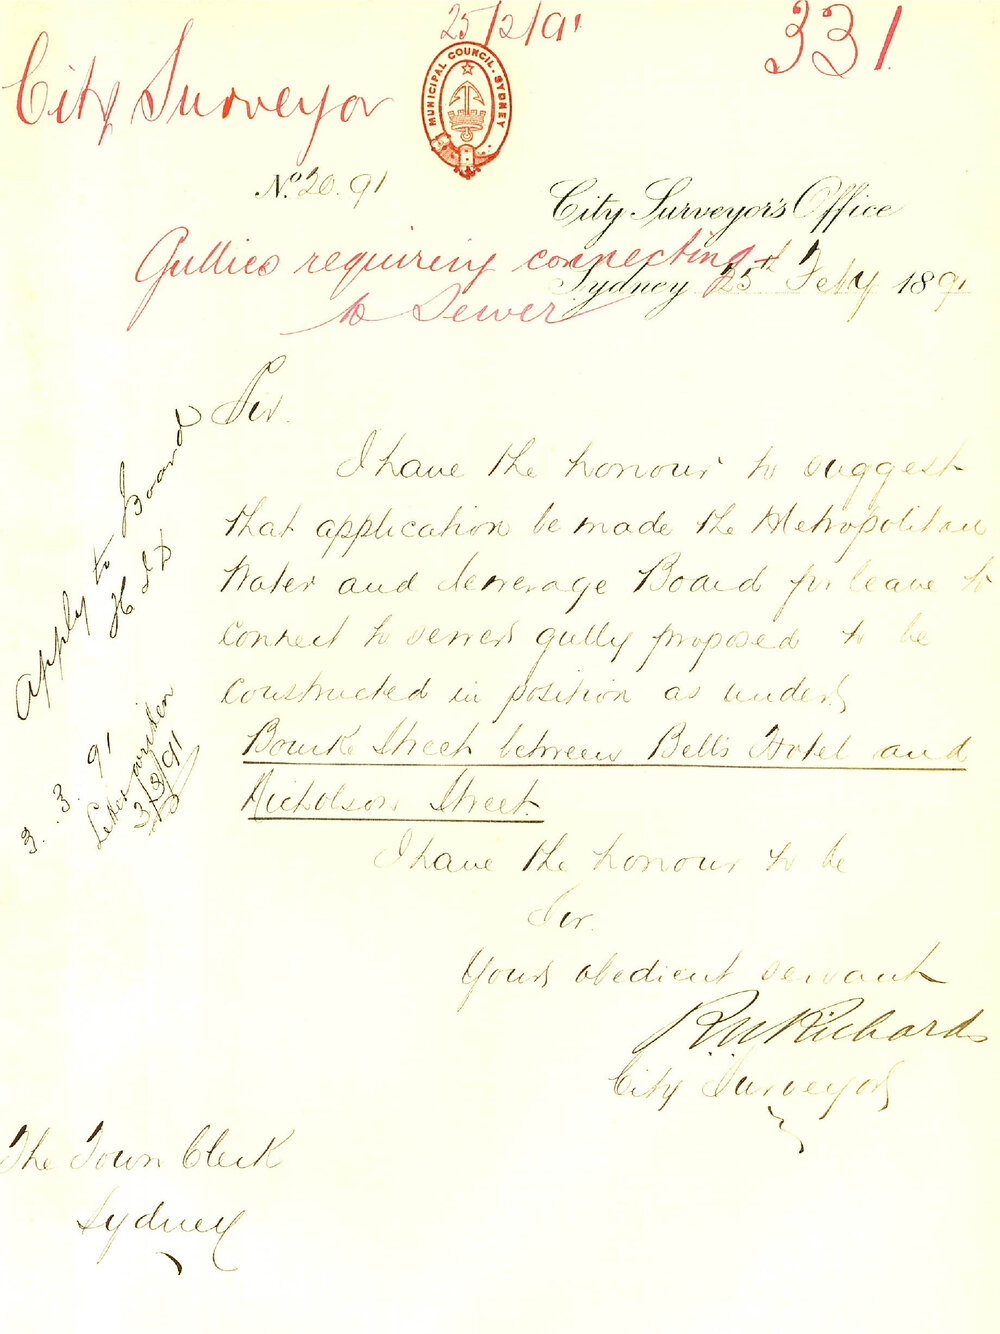 25/2/91
331
City Surveyor
MUNICIPAL COUNCIL. SYDNEY
No. 20.91
City Surveyor's Office
Gullies requiring connecting
Sydney 25th Feby 1891
to Sewer
Sir.
I have the honour to suggest
that application be made the Metropolitan
Water and Sewerage Board for leave to
connect to sewers gully proposed to be
constructed in position as under
Bourke Street between Bells Hotel and
Nicholson Street.
I have the honour to be
Sir.
Yours obedient servant
R.W. Richards
City Surveyor
The Town Clerk
Sydney
Apply to Board
3.3.91
Letter written
3/3/91